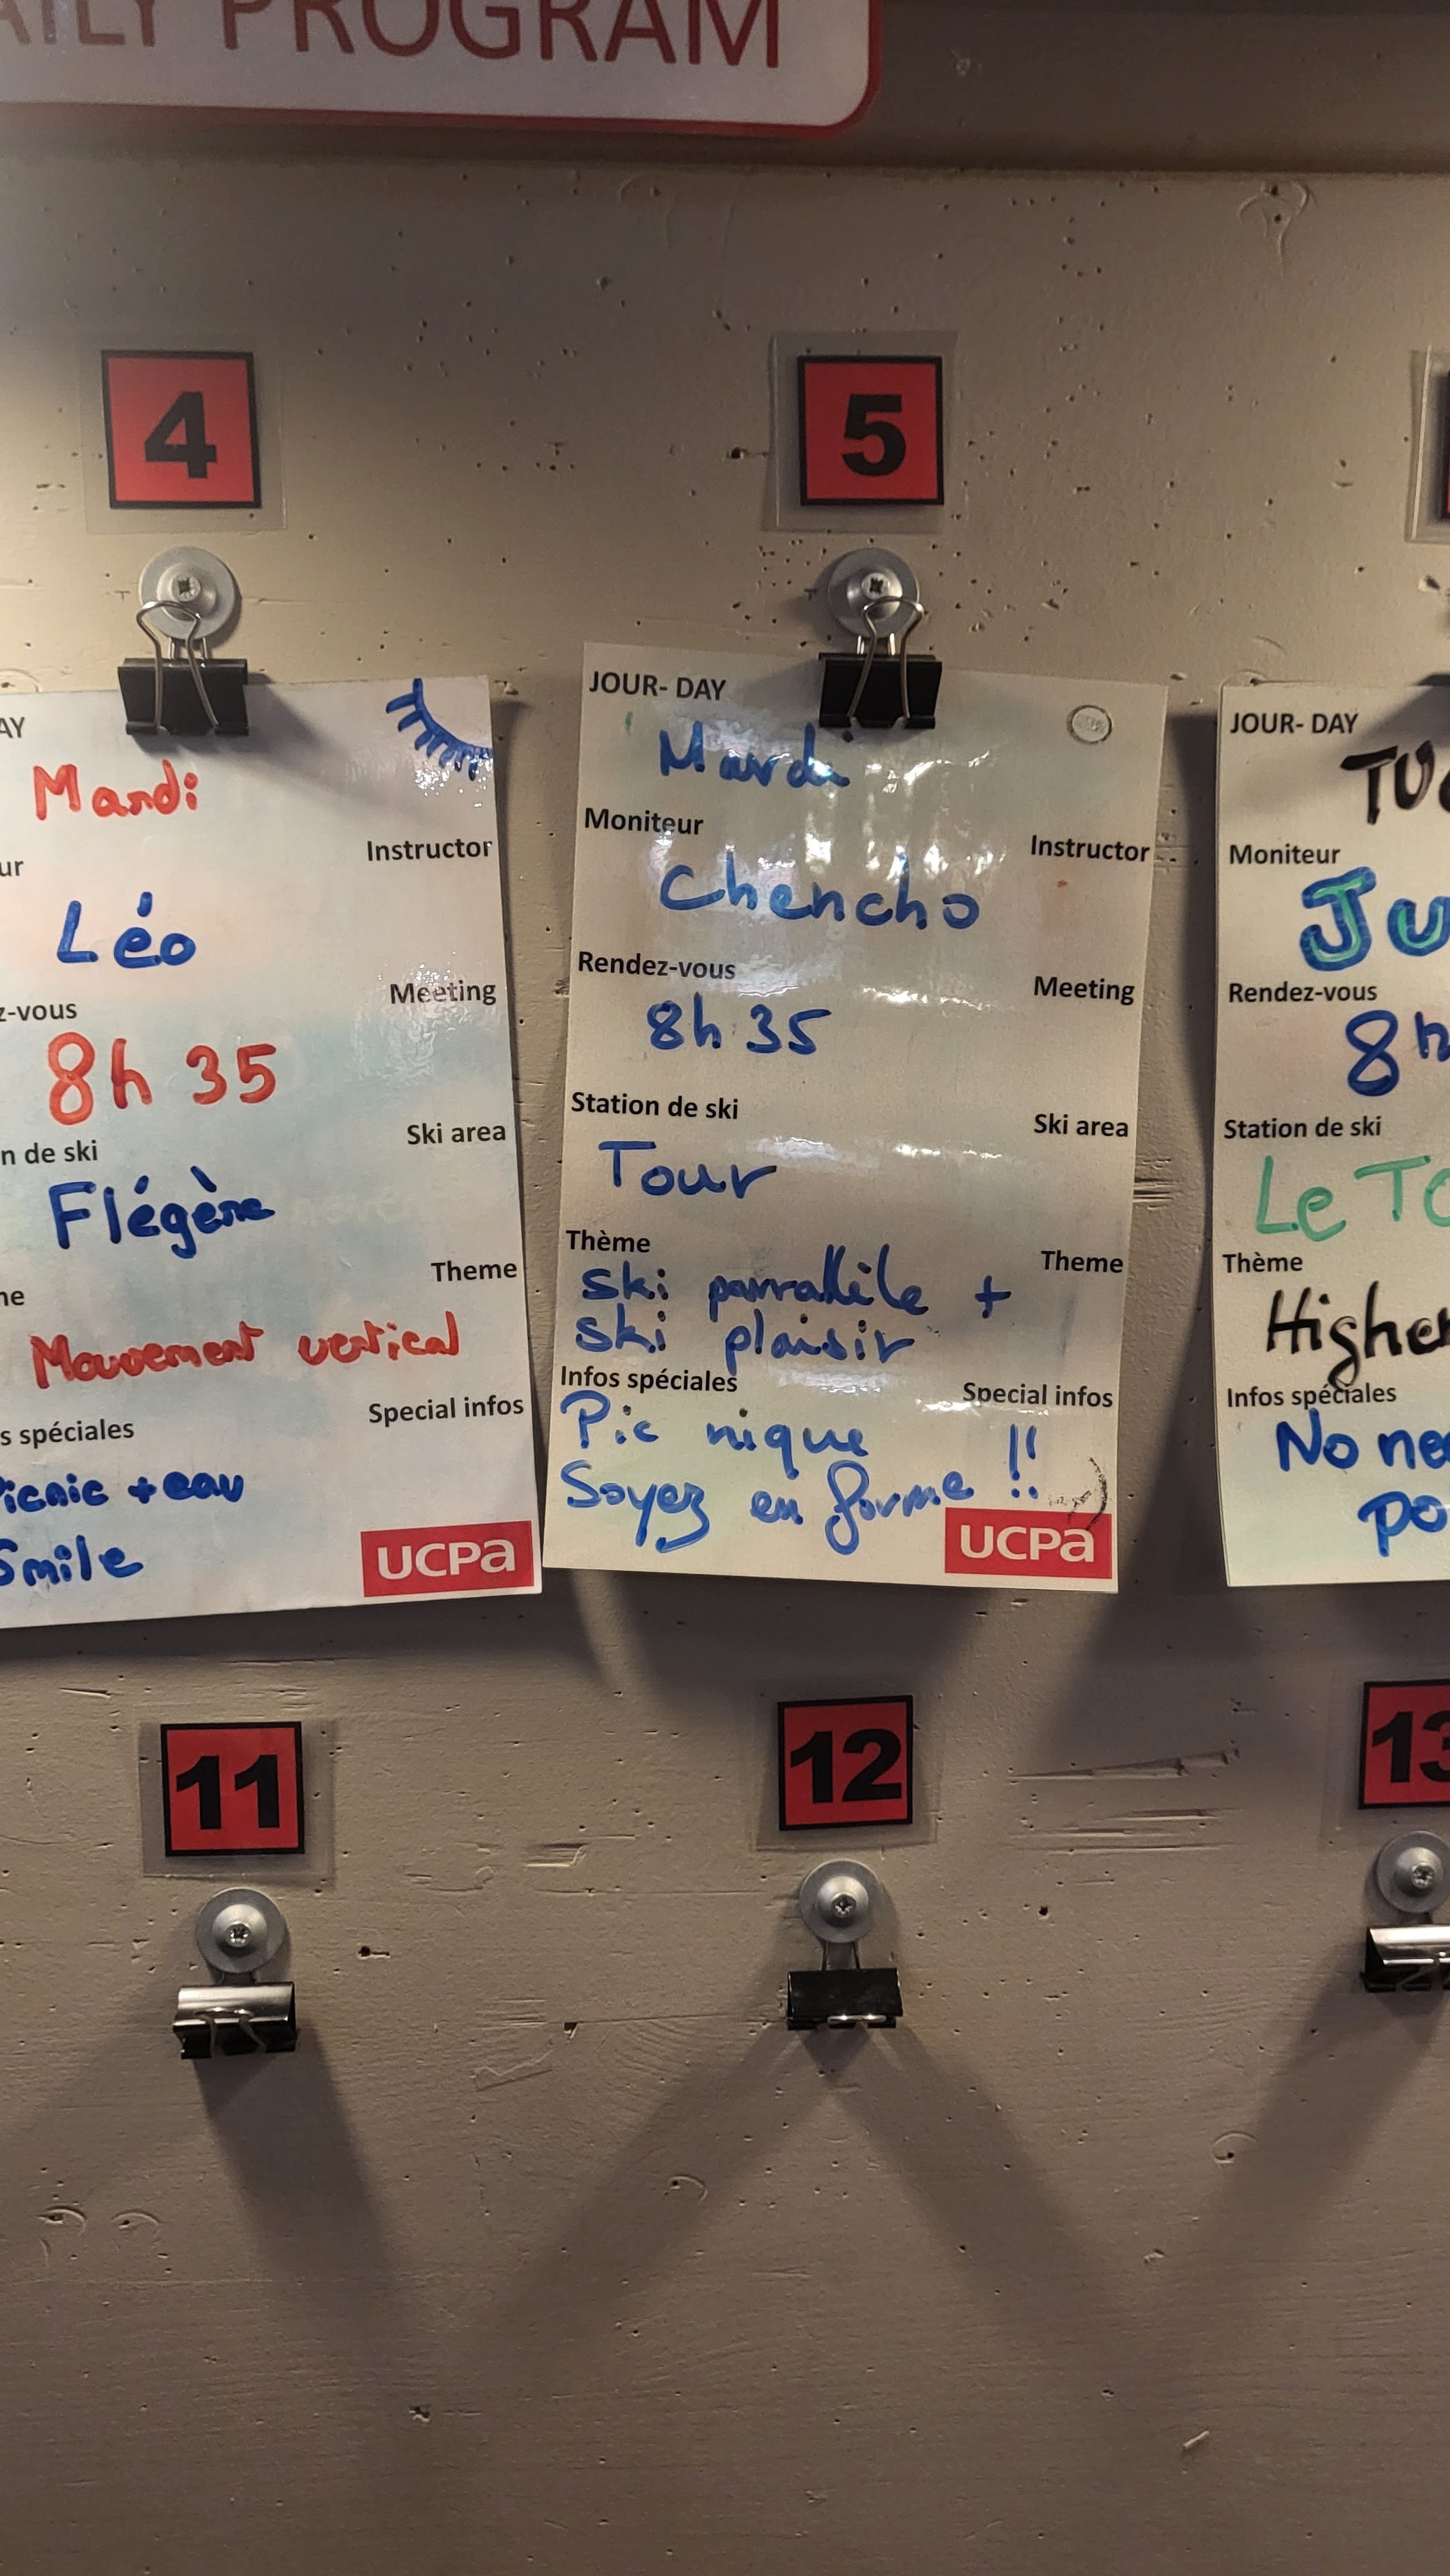 AILY PROGRAM
4
AY
Mardi
ur
Instructor
Léo
z-vous
Meeting
8h 35
n de ski
Ski area
Flégère
ne
Theme
Mouvement vertical
s spéciales
Special infos
Picnic + eau
Smile
UCPa
5
JOUR- DAY
Mardi
Moniteur
Instructor
Chencho
Rendez-vous
Meeting
8h 35
Station de ski
Ski area
Tour
Thème
Theme
Ski parrallèle +
ski plaisir
Infos spéciales
Special infos
Pic nique !!
Soyez en forme !!
UCPa
JOUR- DAY
TU
Moniteur
JU
Rendez-vous
8h
Station de ski
Le TO
Thème
Higher
Infos spéciales
No ne
po
11
12
13